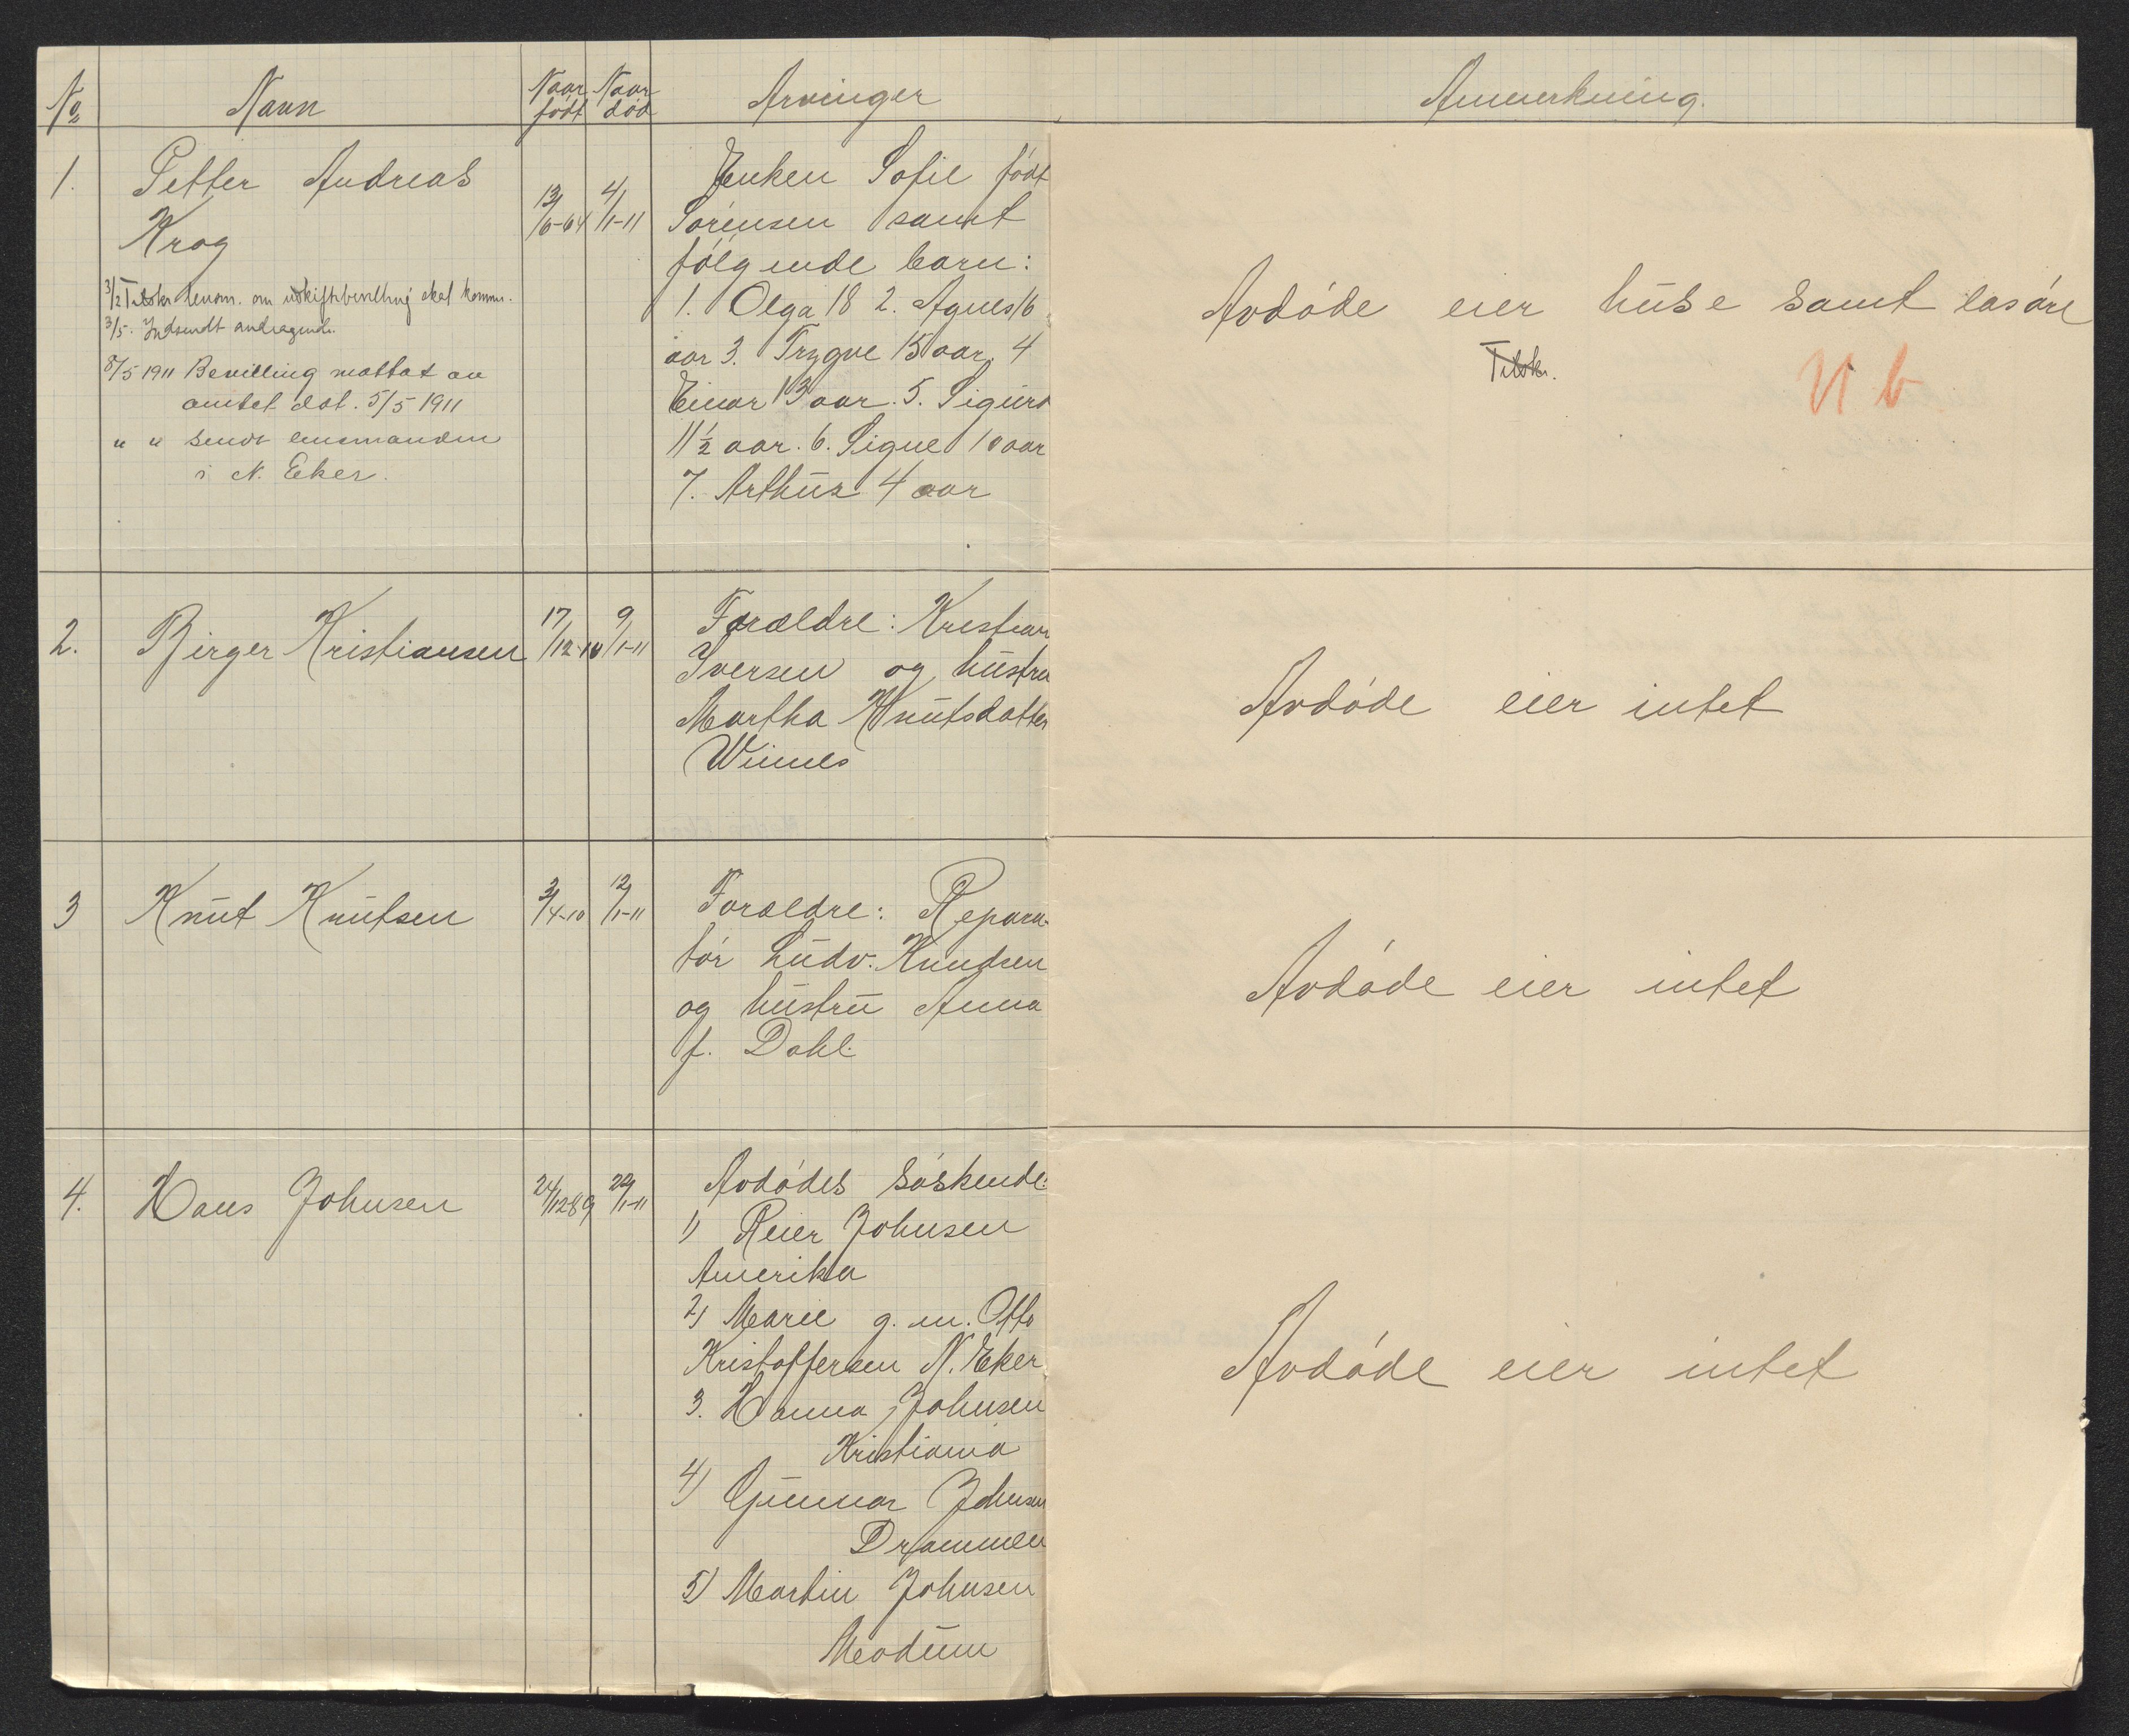 No Navn Naar født Naar død Arvinger Anmerkning.
1. Petter Andreas
Krog
13/6-64 4/1-11
3/2 Tilskr. lensm. om uskiftbevilling skal komme.
3/5. Indsendt andragende.
8/5 1911 Bevilling mottat av
amtet dat. 5/5 1911
" " sendt lensmanden
i N. Eker.
Enken Sofie født
Sørensen samt
følgende barn:
1. Olga 18 2. Agnes 16
aar 3. Trygve 15 aar, 4
Einar 13 aar. 5. Sigurd
11½ aar. 6. Signe 10 aar
7. Arthur 4 aar
Avdøde eier huse samt løsøre
Tilskr.
U b
2. Birger Kristiansen 17/12-10 9/1-11
Forældre: Kristian
Iversen og hustru
Martha Knutsdatter
Avdøde eier intet
3 Knut Knutsen 3/4-10 12/1-11
Forældre: Repara-
tør Ludv. Knudsen
og hustru Anna
f. Dahl.
Avdøde eier intet
4. Hans Johnsen 24/12 89 22/1-11
Avdødes søskende:
1) Reier Johnsen
Amerika
2) Marie g. m. Otto
Kristoffersen N. Eker
3. Hanna Johnsen
Kristiania
4) Gunnar Johnsen
Drammen
5) Martin Johnsen
Modum
Avdøde eier intet